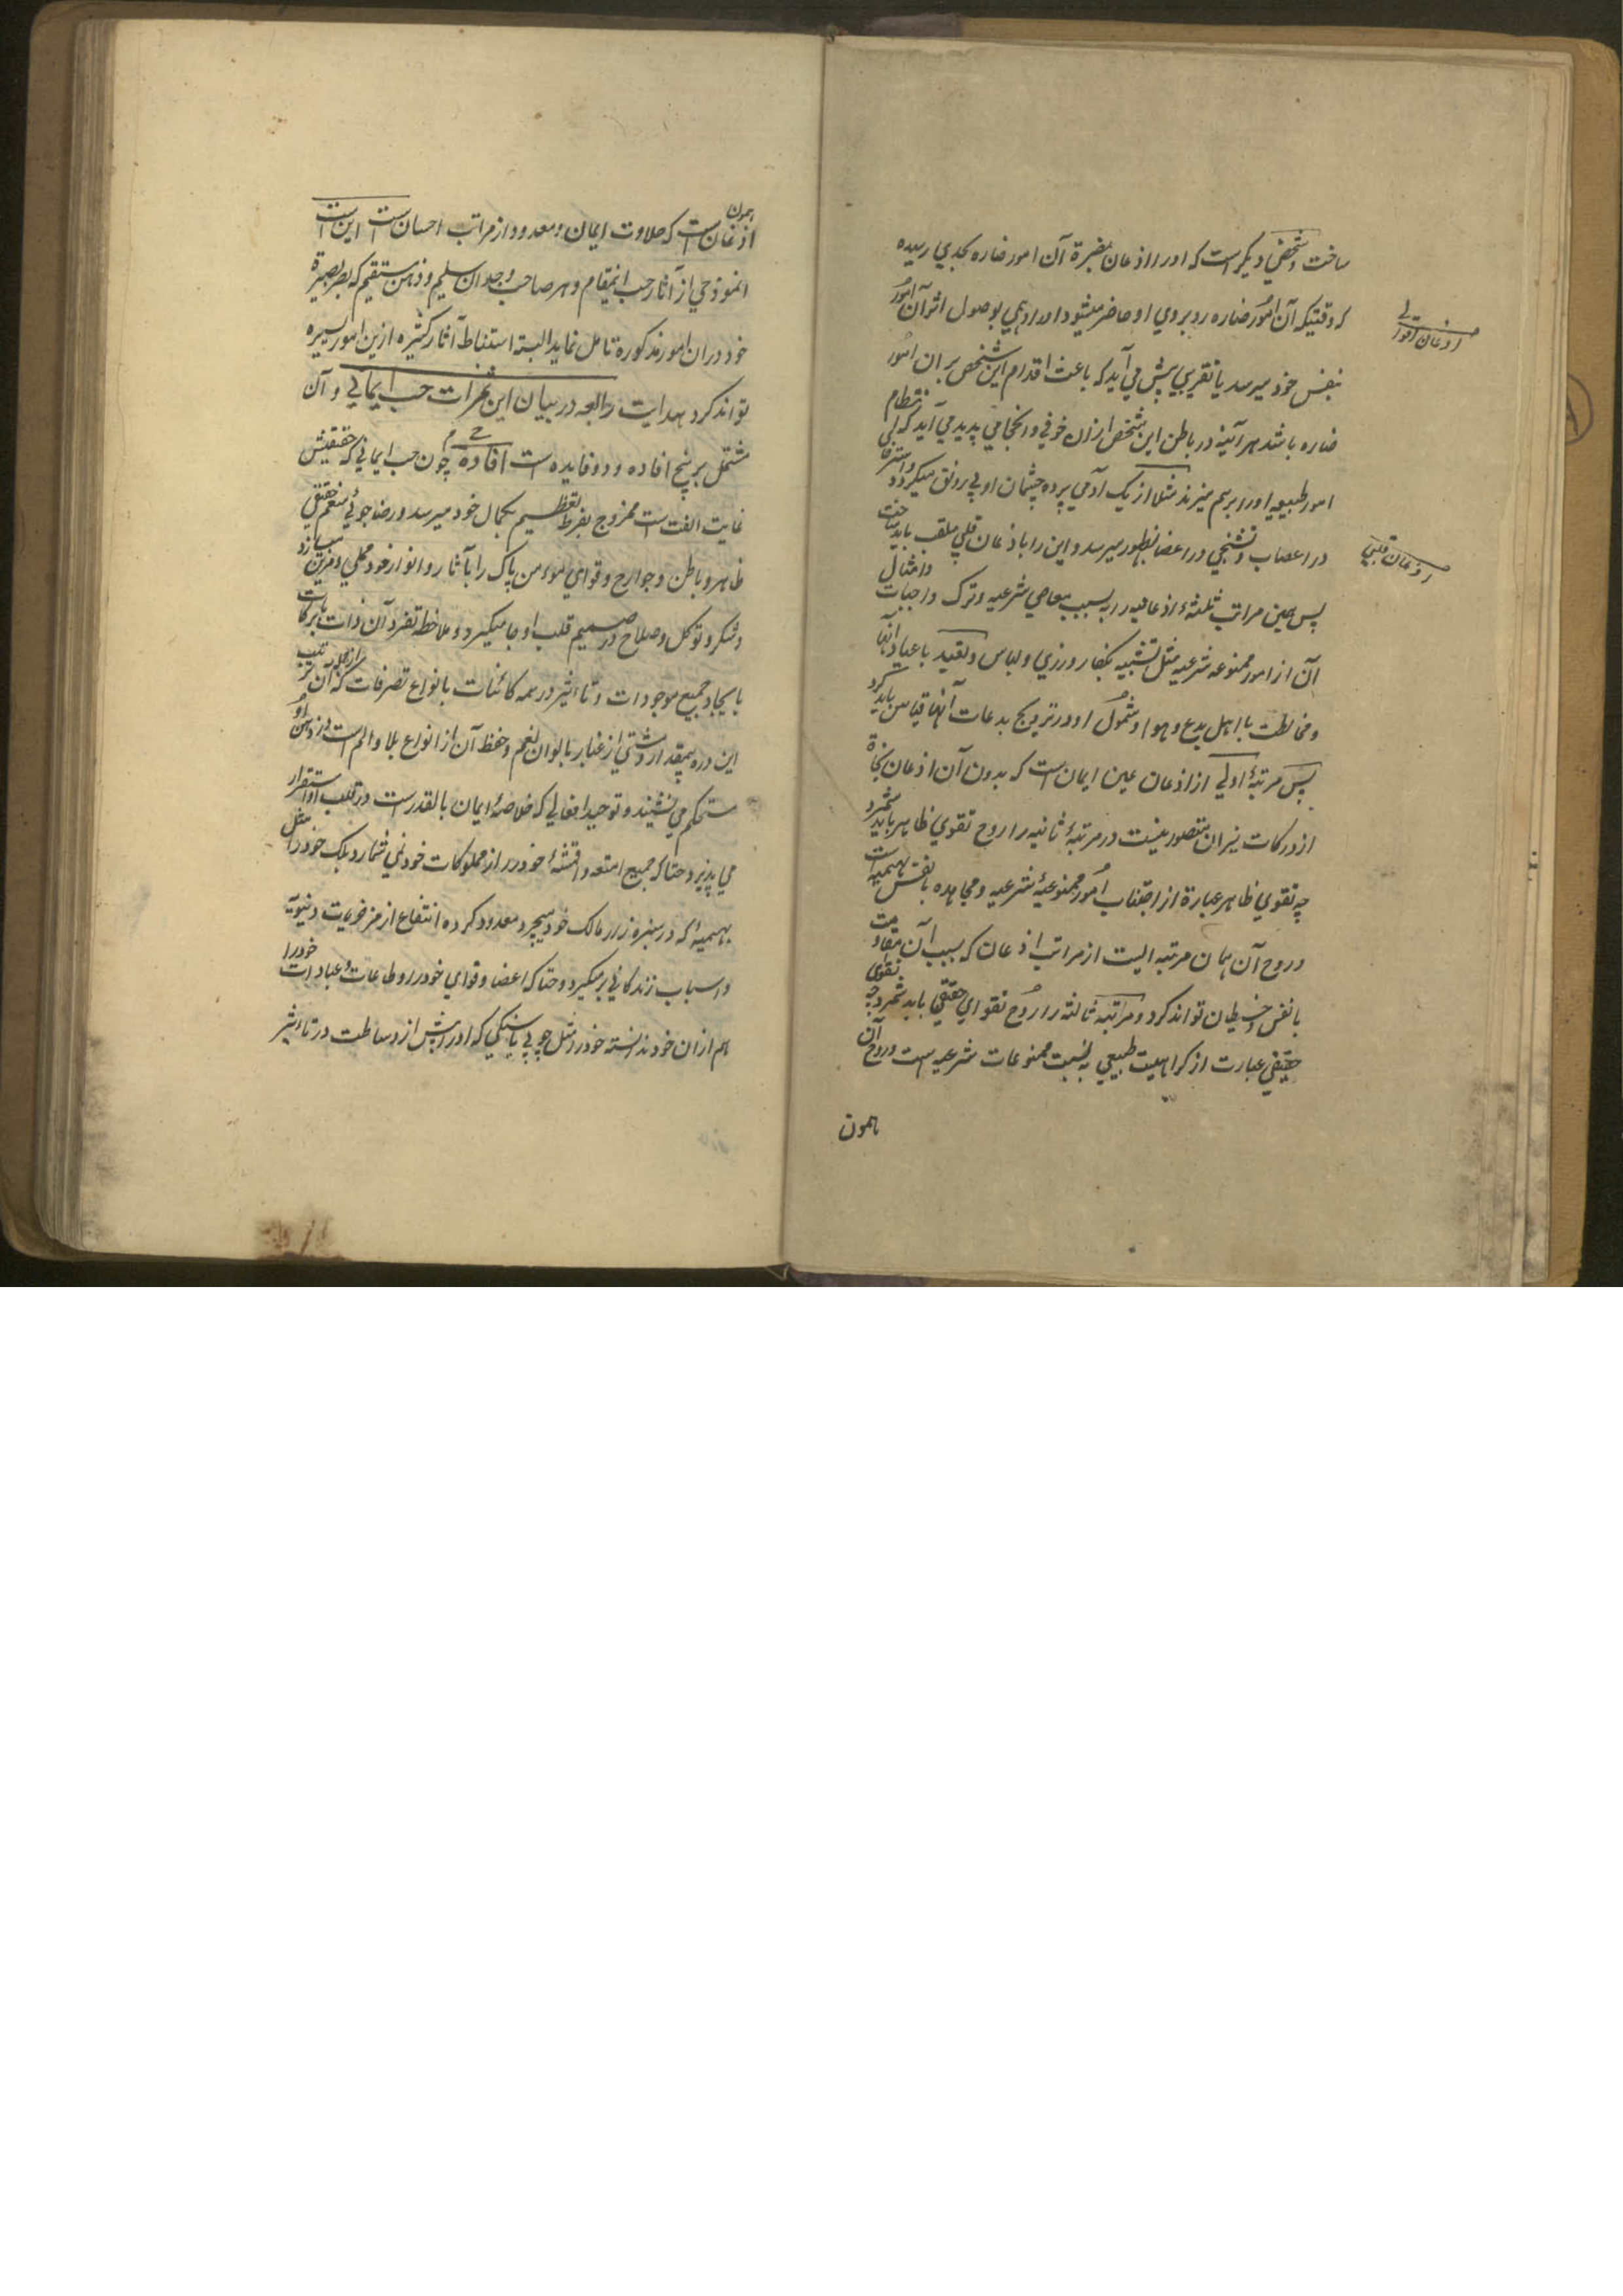 ساخت و شخصي ديكر است كه او را اذعان بمضرة آن امور ضاره بحدي رسيده
كه وقتيكه آن امور ضاره روبروي او حاضر ميشود و او را وهمي بوصول اثر آن امور
بنفس خود ميرسد يا تقريبي پيش مي آيد كه باعث اقدام اين شخص بر ان امور
ضاره باشد هر آئينه در باطن اين شخص ازان خوفي و انحجامي پديد مي آيد كه انتظام
امور طبيعيه او را برهم ميزند مثلا از يك آدمي پرده چشمان او بي رونق ميكردد و استرخا
در اعصاب و تشنجي در اعضا بظهور ميرسد و اين را باذعان قلبي ملقب بايد ساخت
پس همين مراتب ثلثهٔ اذعانيه را بسبب معاصي شرعيه و ترك واجبات و امثال
آن از امور ممنوعه شرعيه مثل تشبيه بكفار در زي و لباس و تقيد باعياد آنها
و مخالطت با اهل بدع و هوا و شمول او در ترويج بدعات آنها قياس بايد كرد
پس مرتبهٔ اولي از اذعان عين ايمان است كه بدون آن اذعان نجاة
از دركات نيران متصور نيست و مرتبهٔ ثانيه را روح تقوي ظاهر بايد شمرد
چه تقوي ظاهر عبارة از اجتناب امور ممنوعهٔ شرعيه و مجاهده بانفس بهيميه است
و روح آن همان مرتبه ايست از مراتب اذعان كه بسبب آن مقاومت
بانفس و شيطان تواند كرد و مرتبه ثالثه را روح تقواي حقيقي بايد شمرد چه تقوي
حقيقي عبارت از كراهيت طبيعي به نسبت ممنوعات شرعيه است و روح آن
همون
اذعان قلبي
همون
اذعان است كه حلاوت ايمان و معدود از مراتب احسان است اين است
انموذجي از آثار حب اينمقام و هر صاحب وجدان سليم و ذهن مستقيم كه ببصر بصيرة
خود دران امور مذكورة تامل نمايد البته استنباط آثار كثيره ازين امور يسيره
تواند كرد هدايت رابعه در بيان اين ثمرات حب ايماني و آن
مشتمل بر پنج افاده و دو فايده است افاده چون حب ايماني كه حقيقتش
غايت الفت است ممزوج بفرط تعظيم بكمال خود ميرسد و رضاجوئي منعم حقيقي
ظاهر و باطن و جوارح و قواي مؤمن پاك را بآثار و انوار خود محلي و مزين ميسازد
و شكر و توكل و صلاح در صميم قلب او جا ميكيرد و ملاحظه تفرد آن ذات بابركات
بايجاد جميع موجودات و تاثير در همه كائنات بانواع تصرفات كه آن
اين ذره بيمقدار و مشتي از غبار بالوان نعم و حفظ آن از انواع بلا و الم است در ذهن او
مستحكم مي نشيند و توحيد افعالي كه خلاصهٔ ايمان بالقدر است در قلب او استقرار
مي پذيرد حتا كه جميع امتعه و اقمشهٔ خود را از مملوكات خود نمي شمارد بلكه خود را مثل
بهيميهٔ كه در سبزه زار مالك خود ميچرد معدود كرده انتفاع از مزخرفات دنيويه
و اسباب زندكاني برميكيرد و حتا كه اعضا و قواي خود را و طاعات و عبادات خود را
هم ازان خود ندانسته خود را مثل چوبي يا سنكي كه او را بيش از وساطت در تاثير